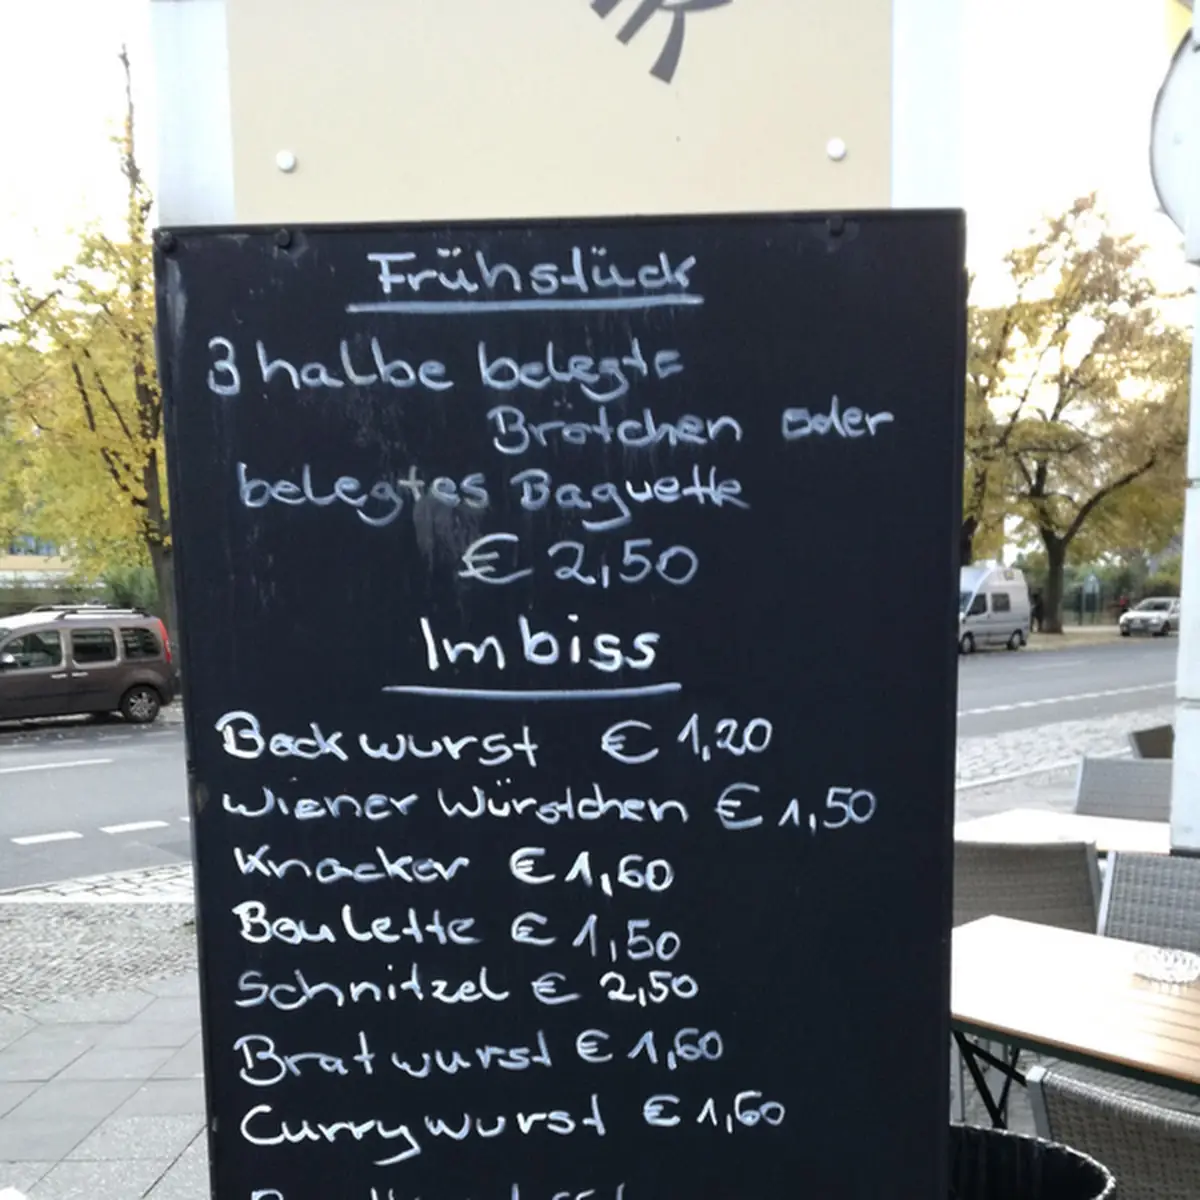 Frühstück
3 halbe belegte
Brötchen oder
belegtes Baguette
€ 2,50
Imbiss
Bockwurst € 1,20
Wiener Würstchen € 1,50
Knacker € 1,60
Boulette € 1,50
Schnitzel € 2,50
Bratwurst € 1,60
Currywurst € 1,60